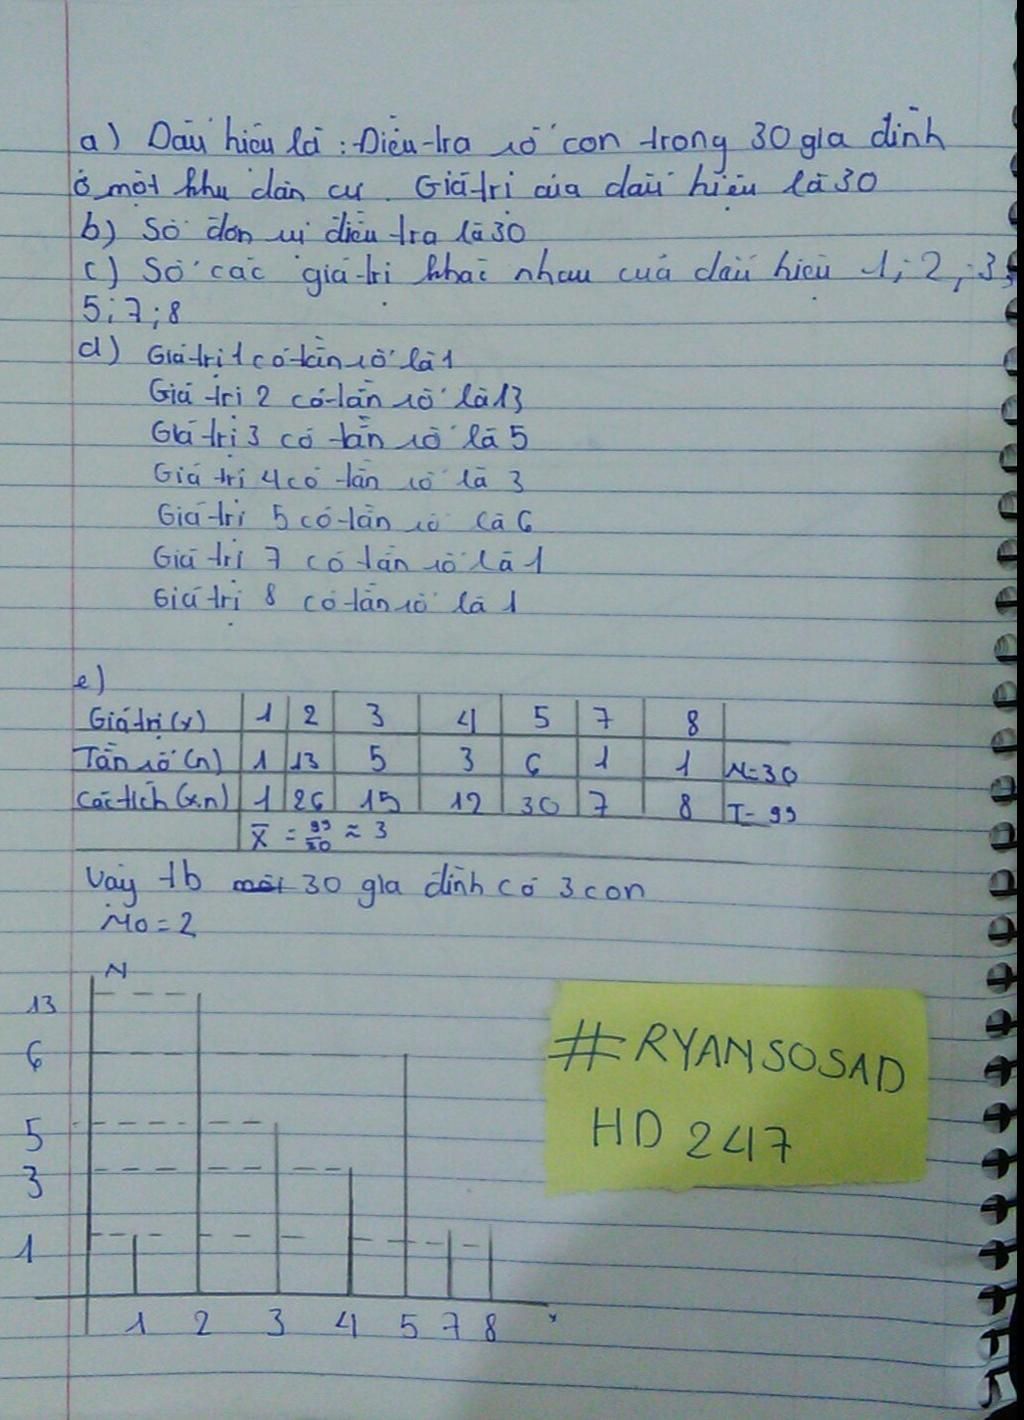 a) Dấu hiệu là : Điều tra số con trong 30 gia đình
ở một khu dân cư. Giá trị của dấu hiệu là 30
b) Số đơn vị điều tra là 30
c) Số các giá trị khác nhau của dấu hiệu 1; 2; 3;
5; 7; 8
d) Giá trị 1 có tần số là 1
Giá trị 2 có tần số là 13
Giá trị 3 có tần số là 5
Giá trị 4 có tần số là 3
Giá trị 5 có tần số là 6
Giá trị 7 có tần số là 1
Giá trị 8 có tần số là 1
e)
Giá trị (x) 1 2 3 4 5 7 8
Tần số (n) 1 13 5 3 6 1 1 N=30
Các tích (x.n) 1 26 15 12 30 7 8 T=99
X̄ = 99/30 ≈ 3
Vậy tb 30 gia đình có 3 con
Mo = 2
N
13
6
5
3
1
1 2 3 4 5 7 8 x
#RYANSOSAD
HD 247